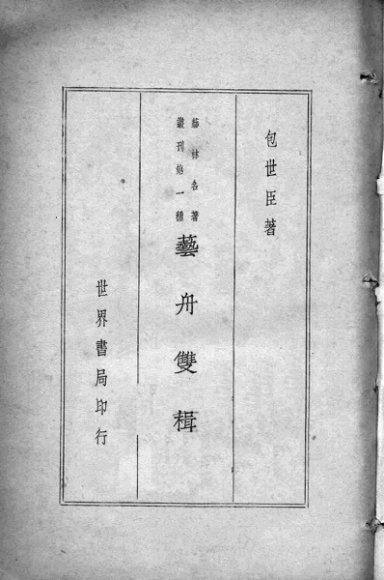 包世臣著
藝林名著
叢刊第一種
藝舟雙楫
世界書局印行